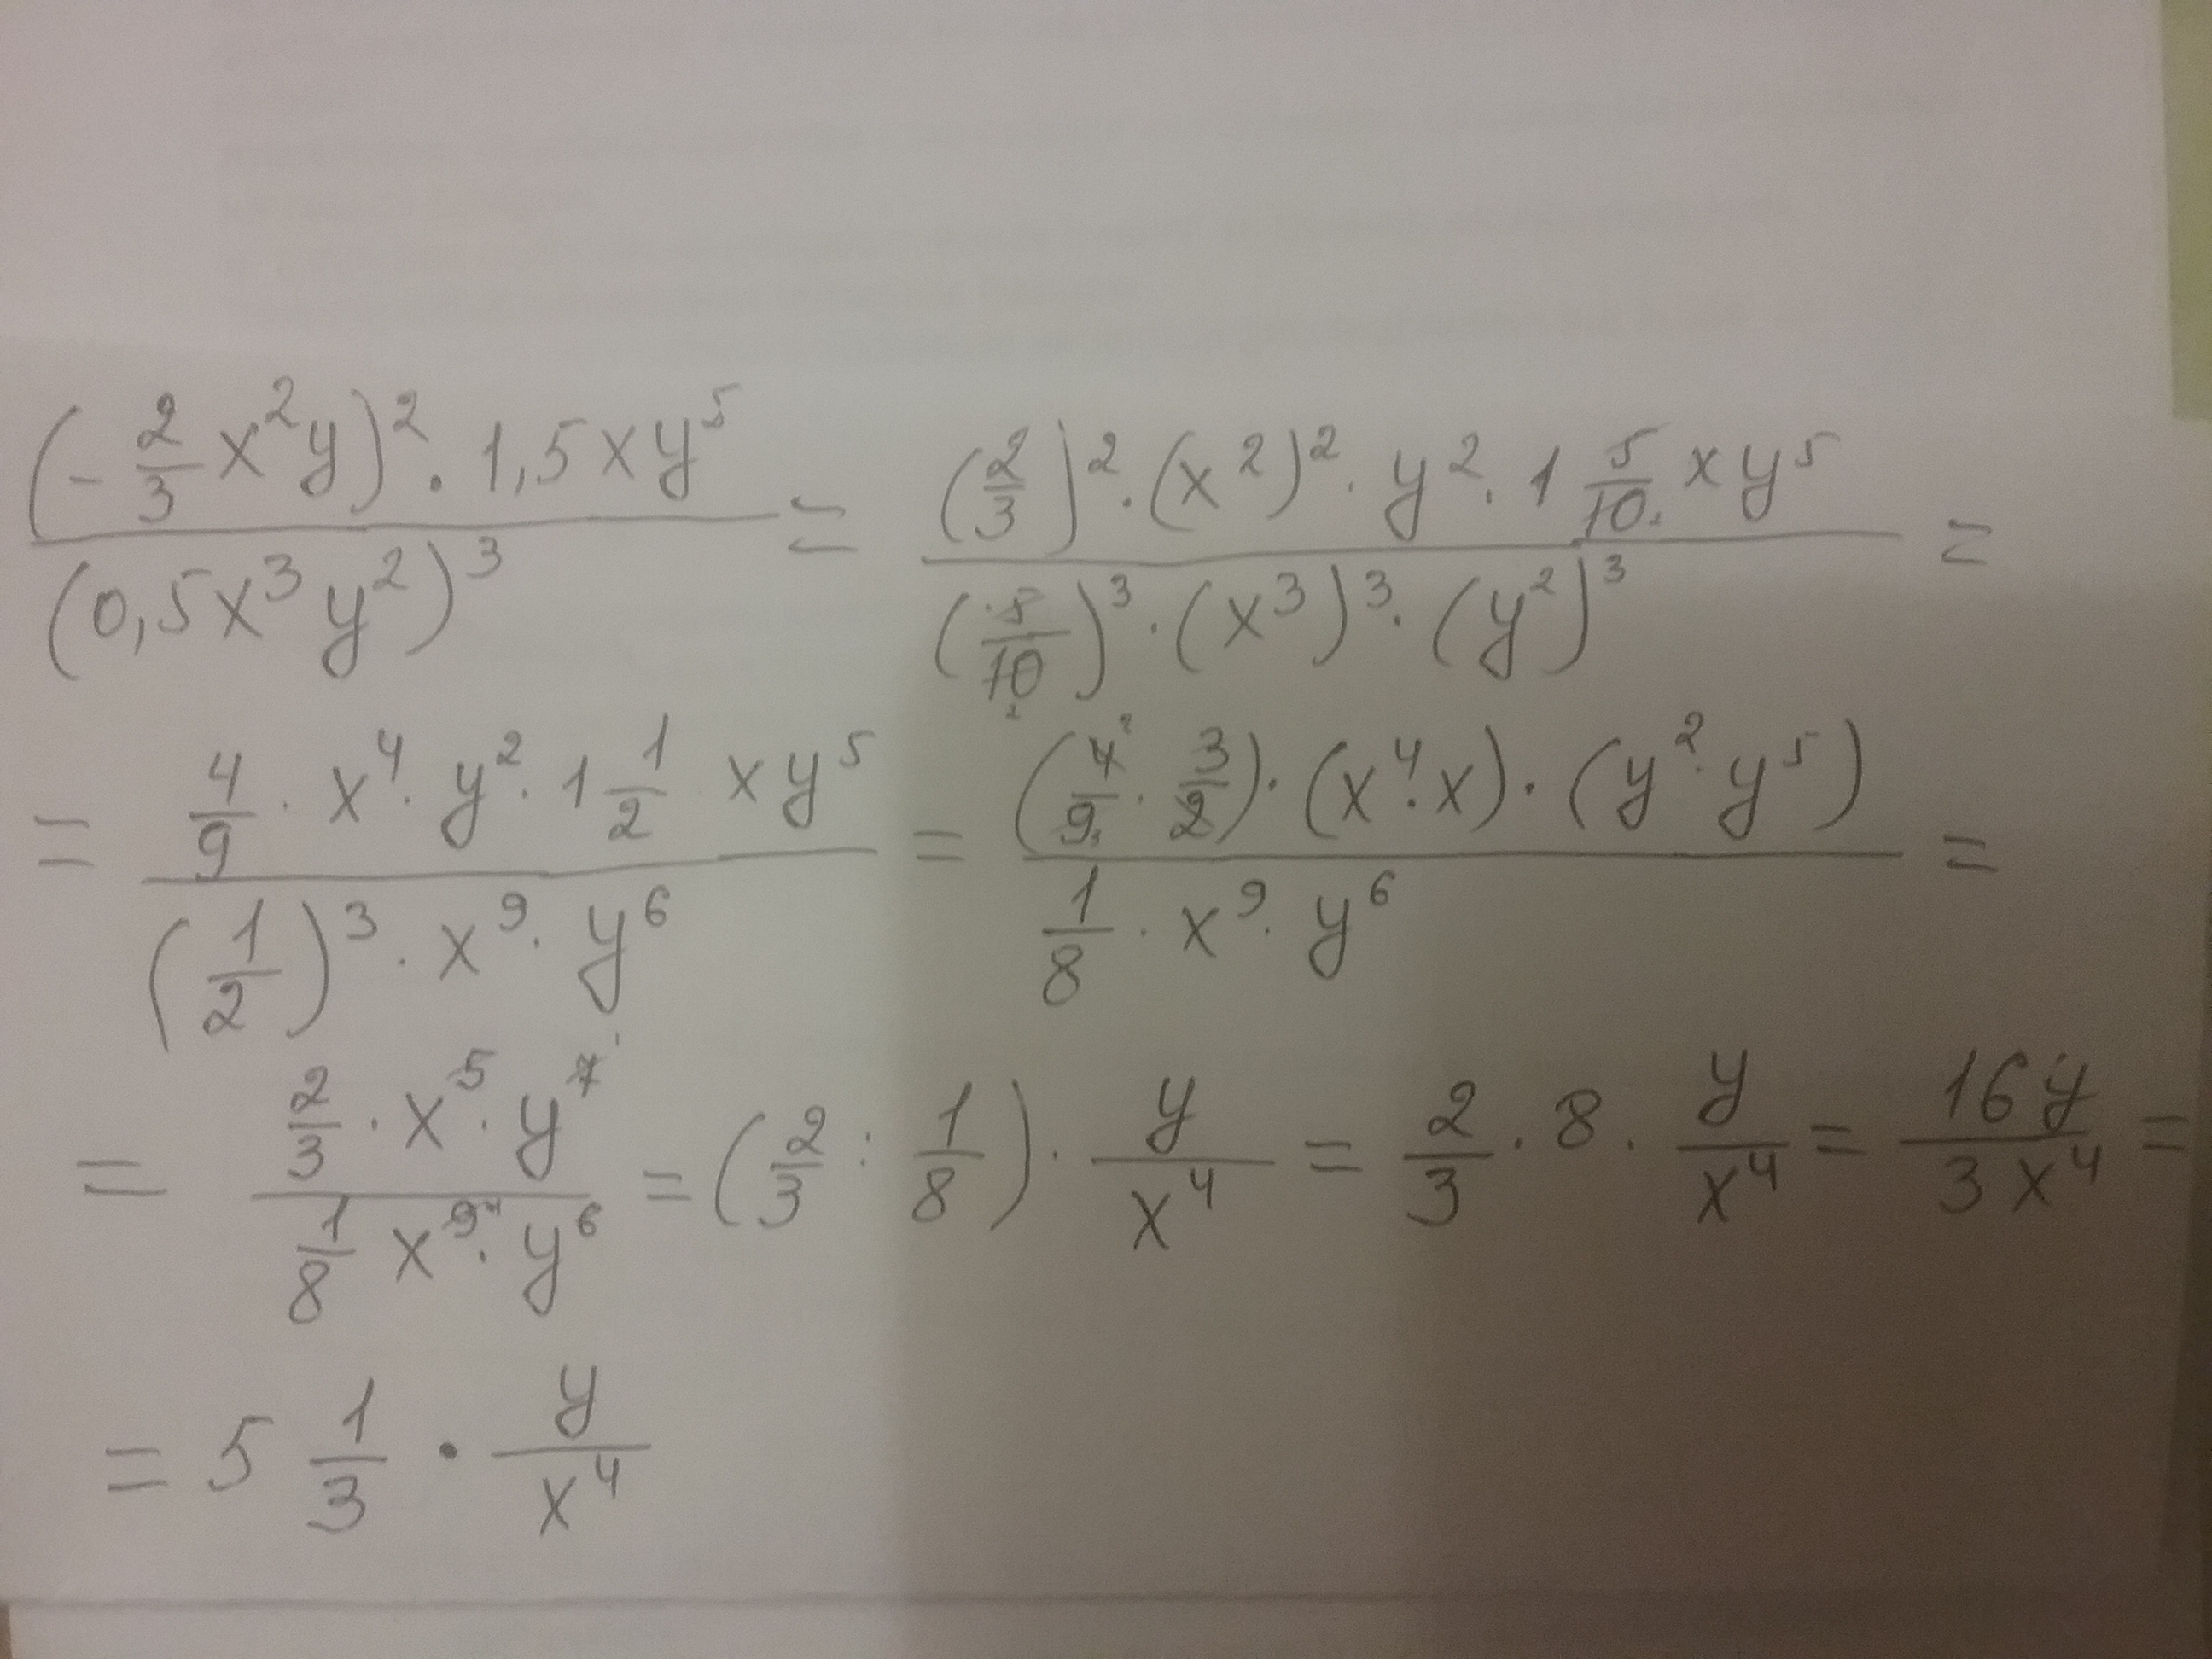 (-2/3 x²y)² · 1,5xy⁵ / (0,5x³y²)³ = (2/3)² · (x²)² · y² · 1 5/10 xy⁵ / (5/10)³ · (x³)³ · (y²)³ =
= 4/9 · x⁴ · y² · 1 1/2 xy⁵ / (1/2)³ · x⁹ · y⁶ = (4/9 · 3/2) · (x⁴ · x) · (y² · y⁵) / 1/8 · x⁹ · y⁶ =
= 2/3 · x⁵ · y⁷ / 1/8 x⁹ · y⁶ = (2/3 : 1/8) · y/x⁴ = 2/3 · 8 · y/x⁴ = 16y/3x⁴ =
= 5 1/3 · y/x⁴